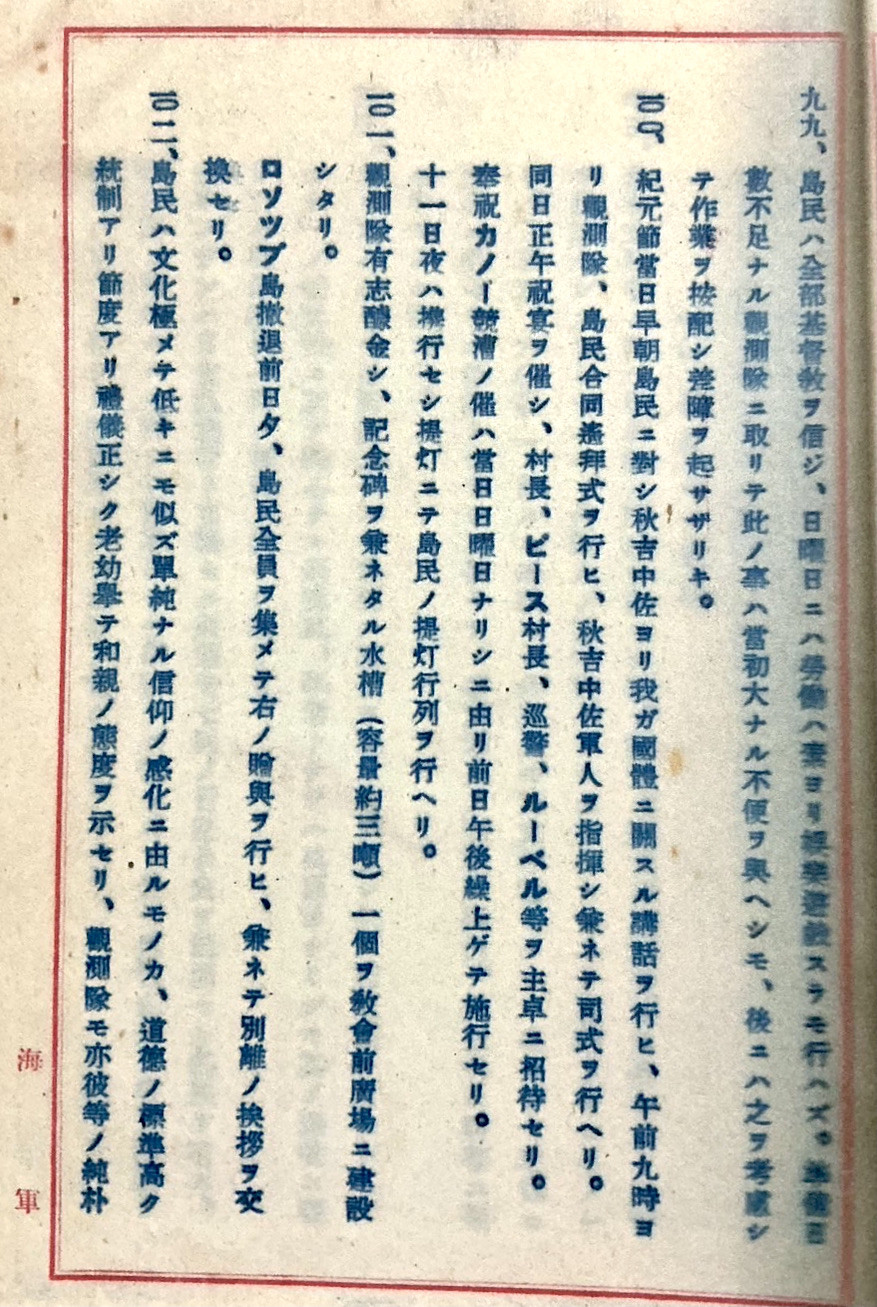 九九、島民ハ全部基督敎ヲ信ジ、日曜日ニハ勞働ハ素ヨリ娛樂遊戲スラモ行ハズ。準備日
數不足ナル觀測隊ニ取リテ此ノ事ハ當初大ナル不便ヲ與ヘシモ、後ニハ之ヲ考慮シ
テ作業ヲ按配シ差障ヲ起サザリキ。
一〇〇、紀元節當日早朝島民ニ對シ秋吉中佐ヨリ我ガ國體ニ關スル講話ヲ行ヒ、午前九時ヨ
リ觀測隊、島民合同遙拜式ヲ行ヒ、秋吉中佐軍人ヲ指揮シ兼ネテ司式ヲ行ヘリ。
同日正午祝宴ヲ催シ、村長、ピース村長、巡警、ルーベル等ヲ主卓ニ招待セリ。
奉祝カノー競漕ノ催ハ當日日曜日ナリシニ由リ前日午後繰上ゲテ施行セリ。
十一日夜ハ携行セシ提灯ニテ島民ノ提灯行列ヲ行ヘリ。
一〇一、觀測隊有志醵金シ、記念碑ヲ兼ネタル水槽(容量約三噸)一個ヲ敎會前廣場ニ建設
シタリ。
ロソツプ島撤退前日夕、島民全員ヲ集メテ右ノ贈與ヲ行ヒ、兼ネテ別離ノ挨拶ヲ交
換セリ。
一〇二、島民ハ文化極メテ低キニモ似ズ單純ナル信仰ノ感化ニ由ルモノカ、道德ノ標準高ク
統制アリ節度アリ禮儀正シク老幼擧テ和親ノ態度ヲ示セリ、觀測隊モ亦彼等ノ純朴
海軍